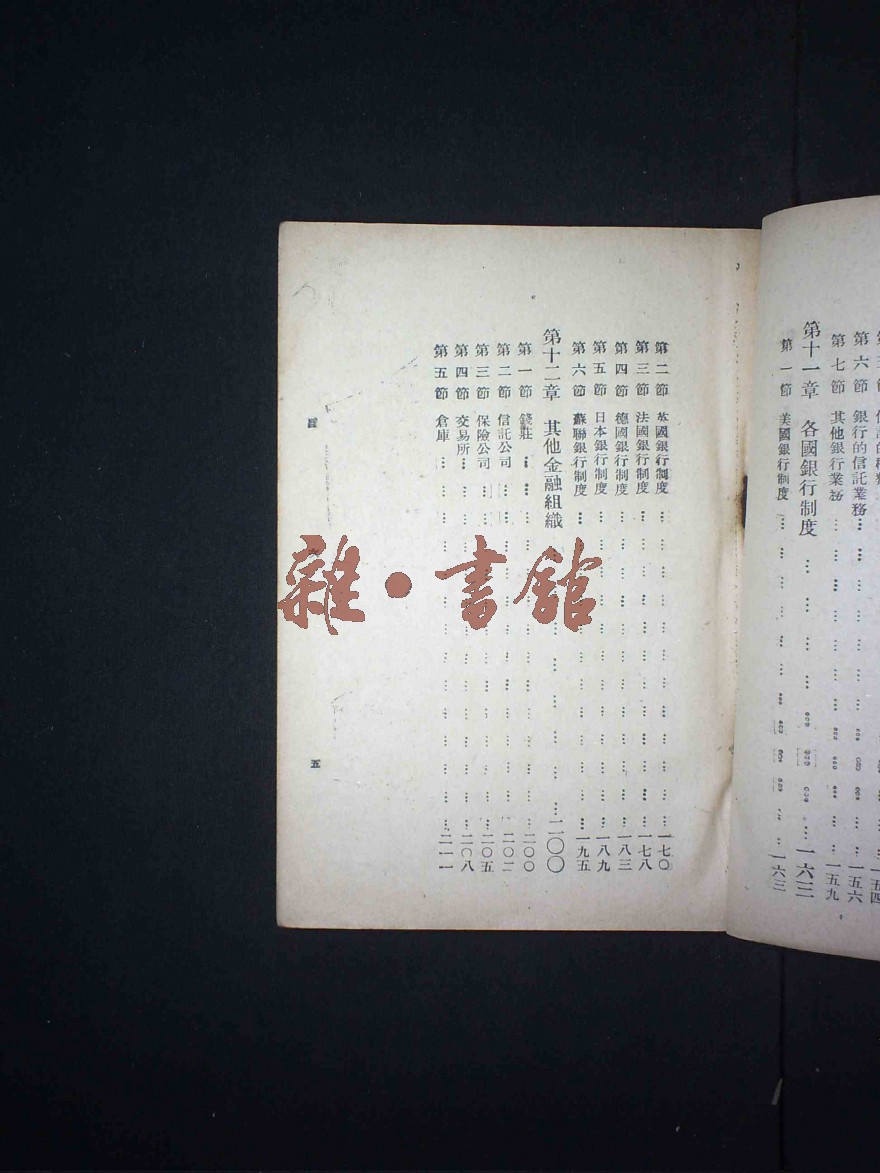 第六節 銀行的信託業務 一五六
第七節 其他銀行業務 一五九
第十一章 各國銀行制度 一六三
第一節 美國銀行制度 一六三
第二節 英國銀行制度 一七〇
第三節 法國銀行制度 一七八
第四節 德國銀行制度 一八三
第五節 日本銀行制度 一八九
第六節 蘇聯銀行制度 一九五
第十二章 其他金融組織 二〇〇
第一節 錢莊 二〇〇
第二節 信託公司 二〇二
第三節 保險公司 二〇五
第四節 交易所 二〇八
第五節 倉庫 二一一
五
雜·書館